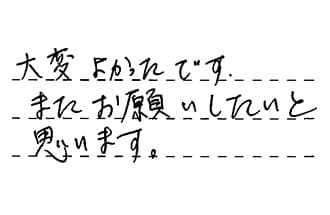 大変よかったです.
またお願いしたいと
思います。